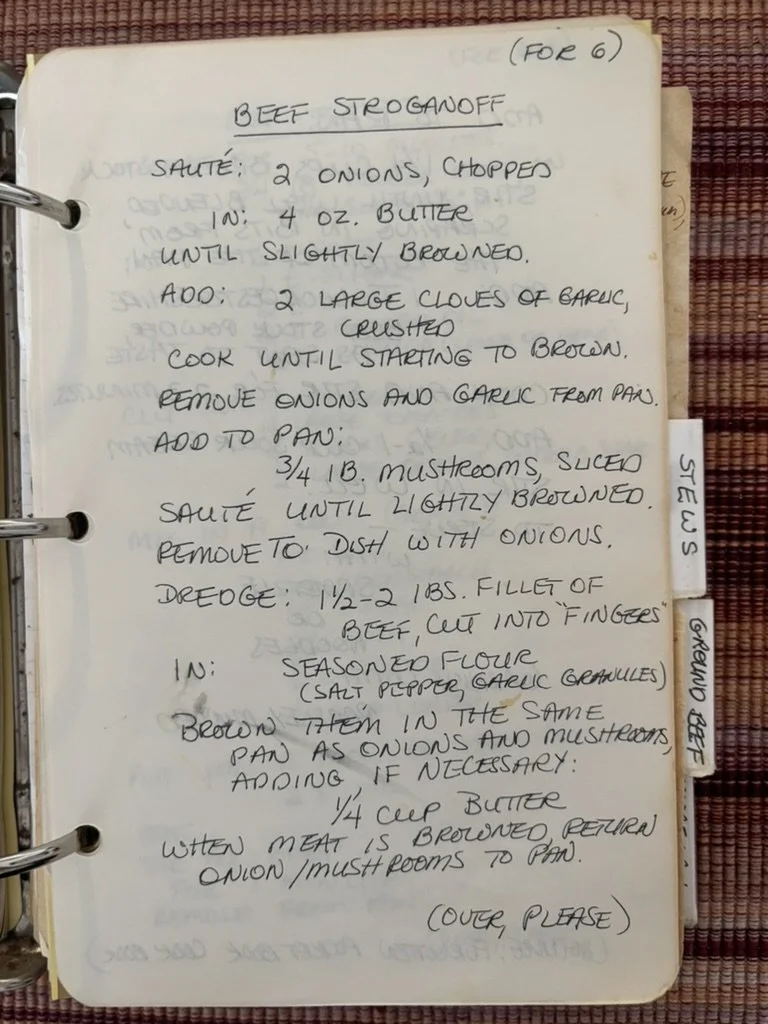 (FOR 6)
BEEF STROGANOFF
SAUTÉ: 2 ONIONS, CHOPPED
IN: 4 OZ. BUTTER
UNTIL SLIGHTLY BROWNED.
ADD: 2 LARGE CLOVES OF GARLIC,
CRUSHED
COOK UNTIL STARTING TO BROWN.
REMOVE ONIONS AND GARLIC FROM PAN.
ADD TO PAN:
3/4 lB. MUSHROOMS, SLICED
SAUTÉ UNTIL LIGHTLY BROWNED.
REMOVE TO DISH WITH ONIONS.
DREDGE: 1½-2 lBS. FILLET OF
BEEF, CUT INTO "FINGERS"
IN: SEASONED FLOUR
(SALT PEPPER, GARLIC GRANULES)
BROWN THEM IN THE SAME
PAN AS ONIONS AND MUSHROOMS,
ADDING, IF NECESSARY:
1/4 CUP BUTTER
WHEN MEAT IS BROWNED, RETURN
ONION/MUSHROOMS TO PAN.
(OVER, PLEASE)
STEWS
GROUND BEEF